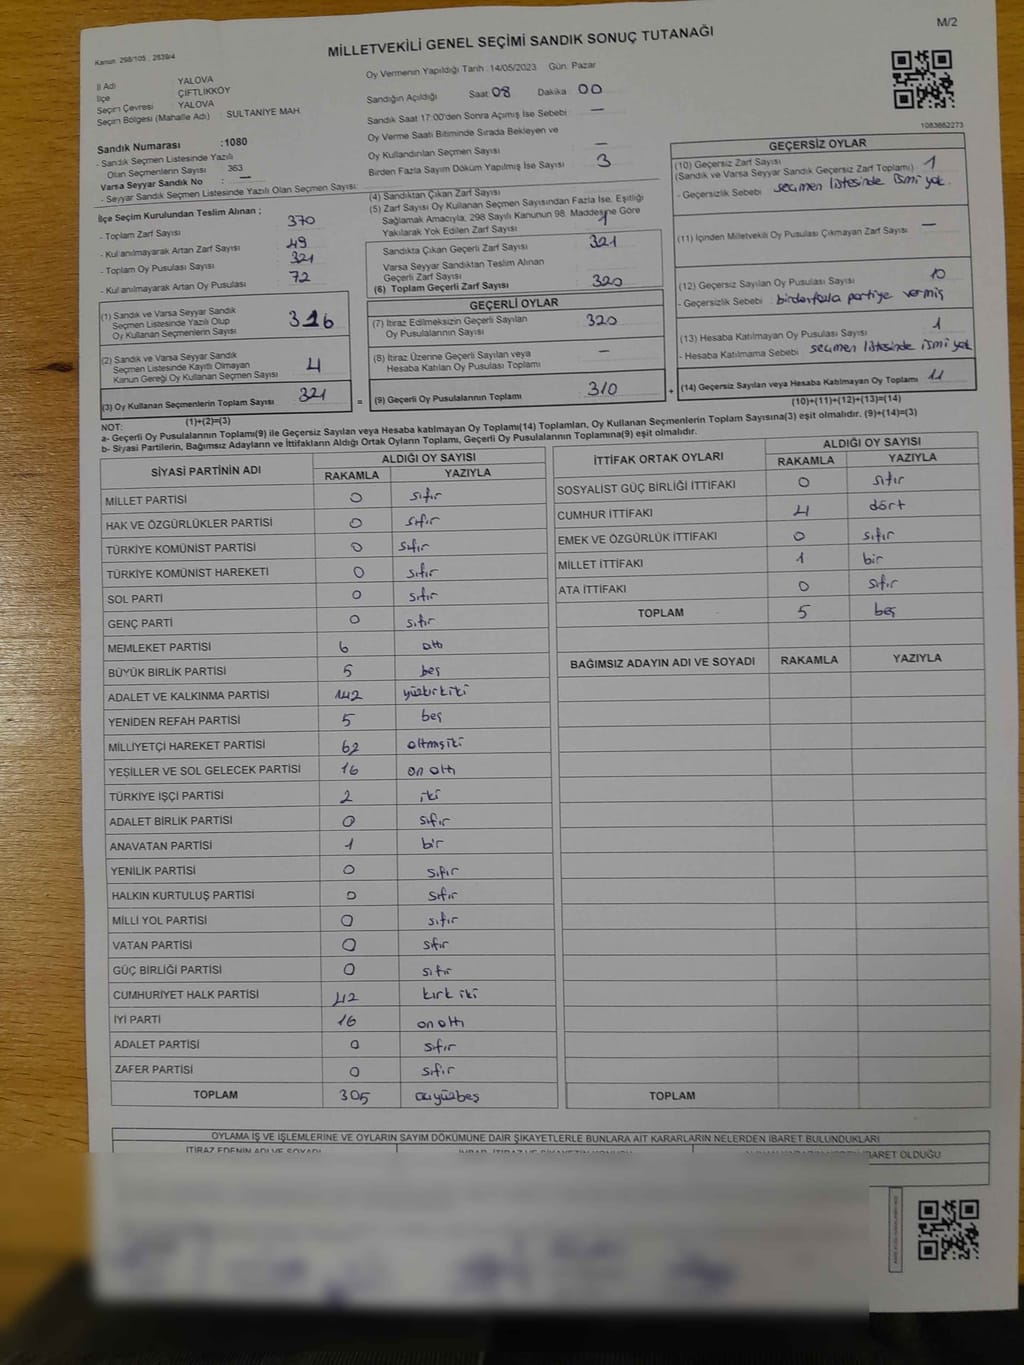 M/2
Kanun 298/105 , 2839/4
MİLLETVEKİLİ GENEL SEÇİMİ SANDIK SONUÇ TUTANAĞI
İl Adı : YALOVA
İlçe : ÇİFTLİKKÖY
Seçim Çevresi : YALOVA
Seçim Bölgesi (Mahalle Adı) : SULTANİYE MAH.
Oy Vermenin Yapıldığı Tarih :14/05/2023 Gün: Pazar
Sandığın Açıldığı Saat: 08 Dakika: 00
Sandık Saat 17:00'den Sonra Açılmış İse Sebebi : —
Oy Verme Saati Bitiminde Sırada Bekleyen ve
Oy Kullandırılan Seçmen Sayısı : —
Birden Fazla Sayım Döküm Yapılmış İse Sayısı : 3
1083662273
Sandık Numarası :1080
- Sandık Seçmen Listesinde Yazılı
Olan Seçmenlerin Sayısı : 363
Varsa Seyyar Sandık No : —
- Seyyar Sandık Seçmen Listesinde Yazılı Olan Seçmen Sayısı:
İlçe Seçim Kurulundan Teslim Alınan ;
- Toplam Zarf Sayısı : 370
- Kullanılmayarak Artan Zarf Sayısı : 49
- Toplam Oy Pusulası Sayısı : 321
- Kullanılmayarak Artan Oy Pusulası : 72
(1) Sandık ve Varsa Seyyar Sandık
Seçmen Listesinde Yazılı Olup
Oy Kullanan Seçmenlerin Sayısı : 316
(2) Sandık ve Varsa Seyyar Sandık
Seçmen Listesinde Kayıtlı Olmayan
Kanun Gereği Oy Kullanan Seçmen Sayısı : 4
(3) Oy Kullanan Seçmenlerin Toplam Sayısı : 321
(1)+(2)=(3)
(4) Sandıktan Çıkan Zarf Sayısı
(5) Zarf Sayısı Oy Kullanan Seçmen Sayısından Fazla İse, Eşitliği
Sağlamak Amacıyla, 298 Sayılı Kanunun 98. Maddesine Göre
Yakılarak Yok Edilen Zarf Sayısı : 1
Sandıkta Çıkan Geçerli Zarf Sayısı : 321
Varsa Seyyar Sandıktan Teslim Alınan
Geçerli Zarf Sayısı
(6) Toplam Geçerli Zarf Sayısı : 320
GEÇERLİ OYLAR
(7) İtiraz Edilmeksizin Geçerli Sayılan
Oy Pusulalarının Sayısı : 320
(8) İtiraz Üzerine Geçerli Sayılan veya
Hesaba Katılan Oy Pusulası Toplamı : —
= (9) Geçerli Oy Pusulalarının Toplamı : 310 +
GEÇERSİZ OYLAR
(10) Geçersiz Zarf Sayısı
(Sandık ve Varsa Seyyar Sandık Geçersiz Zarf Toplamı) : 1
- Geçersizlik Sebebi : seçmen listesinde ismi yok.
(11) İçinden Milletvekili Oy Pusulası Çıkmayan Zarf Sayısı : —
(12) Geçersiz Sayılan Oy Pusulası Sayısı : 10
- Geçersizlik Sebebi : birden fazla partiye vermiş
(13) Hesaba Katılmayan Oy Pusulası Sayısı : 1
- Hesaba Katılmama Sebebi : seçmen listesinde ismi yok
(14) Geçersiz Sayılan veya Hesaba Katılmayan Oy Toplamı : 11
(10)+(11)+(12)+(13)=(14)
NOT:
a- Geçerli Oy Pusulalarının Toplamı(9) ile Geçersiz Sayılan veya Hesaba Katılmayan Oy Toplamı(14) Toplamları, Oy Kullanan Seçmenlerin Toplam Sayısına(3) eşit olmalıdır. (9)+(14)=(3)
b- Siyasi Partilerin, Bağımsız Adayların ve İttifakların Aldığı Ortak Oyların Toplamı, Geçerli Oy Pusulalarının Toplamına(9) eşit olmalıdır.
SİYASİ PARTİNİN ADI ALDIĞI OY SAYISI
RAKAMLA YAZIYLA
MİLLET PARTİSİ 0 sıfır
HAK VE ÖZGÜRLÜKLER PARTİSİ 0 sıfır
TÜRKİYE KOMÜNİST PARTİSİ 0 sıfır
TÜRKİYE KOMÜNİST HAREKETİ 0 sıfır
SOL PARTİ 0 sıfır
GENÇ PARTİ 0 sıfır
MEMLEKET PARTİSİ 6 altı
BÜYÜK BİRLİK PARTİSİ 5 beş
ADALET VE KALKINMA PARTİSİ 142 yüzkırkiki
YENİDEN REFAH PARTİSİ 5 beş
MİLLİYETÇİ HAREKET PARTİSİ 62 altmışiki
YEŞİLLER VE SOL GELECEK PARTİSİ 16 on altı
TÜRKİYE İŞÇİ PARTİSİ 2 iki
ADALET BİRLİK PARTİSİ 0 sıfır
ANAVATAN PARTİSİ 1 bir
YENİLİK PARTİSİ 0 sıfır
HALKIN KURTULUŞ PARTİSİ 0 sıfır
MİLLİ YOL PARTİSİ 0 sıfır
VATAN PARTİSİ 0 sıfır
GÜÇ BİRLİĞİ PARTİSİ 0 sıfır
CUMHURİYET HALK PARTİSİ 42 kırk iki
İYİ PARTİ 16 on altı
ADALET PARTİSİ 0 sıfır
ZAFER PARTİSİ 0 sıfır
TOPLAM 305 üçyüzbeş
İTTİFAK ORTAK OYLARI ALDIĞI OY SAYISI
RAKAMLA YAZIYLA
SOSYALİST GÜÇ BİRLİĞİ İTTİFAKI 0 sıfır
CUMHUR İTTİFAKI 4 dört
EMEK VE ÖZGÜRLÜK İTTİFAKI 0 sıfır
MİLLET İTTİFAKI 1 bir
ATA İTTİFAKI 0 sıfır
TOPLAM 5 beş
BAĞIMSIZ ADAYIN ADI VE SOYADI RAKAMLA YAZIYLA
TOPLAM
OYLAMA İŞ VE İŞLEMLERİNE VE OYLARIN SAYIM DÖKÜMÜNE DAİR ŞİKAYETLERLE BUNLARA AİT KARARLARIN NELERDEN İBARET BULUNDUKLARI
İTİRAZ EDENİN ADI VE SOYADI İBARET OLDUĞU